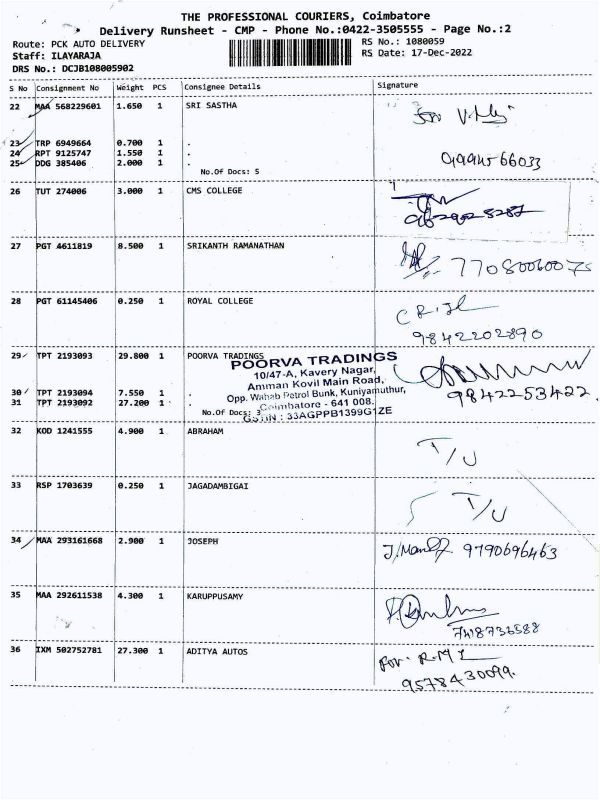 THE PROFESSIONAL COURIERS, Coimbatore
Delivery Runsheet - CMP - Phone No.:0422-3505555 - Page No.:2
Route: PCK AUTO DELIVERY
RS No.: 1080059
Staff: ILAYARAJA
RS Date: 17-Dec-2022
DRS No.: DCJB108005902
S No Consignment No Weight PCS Consignee Details Signature
22 MAA 568229601 1.650 1 SRI SASTHA
for
23 TRP 6949664 0.700 1 .
24 RPT 9125747 1.550 1 .
25 DDG 385406 2.000 1 .
No.Of Docs: 5
26 TUT 274006 3.000 1 CMS COLLEGE
27 PGT 4611819 8.500 1 SRIKANTH RAMANATHAN
77080060075
28 PGT 61145406 0.250 1 ROYAL COLLEGE
9842202890
29 TPT 2193093 29.800 1 POORVA TRADINGS
POORVA TRADINGS
10/47-A, Kavery Nagar,
Amman Kovil Main Road,
30 TPT 2193094 7.550 1 .
Opp. Wahab Petrol Bunk, Kuniyamuthur,
9842253422
31 TPT 2193092 27.200 1 .
Coimbatore - 641 008.
No.Of Docs: 3
GSTIN : 33AGPPB1399G1ZE
32 KOD 1241555 4.900 1 ABRAHAM
T/U
33 RSP 1703639 0.250 1 JAGADAMBIGAI
T/U
34 MAA 293161668 2.900 1 JOSEPH
9790696463
35 MAA 292611538 4.300 1 KARUPPUSAMY
7418736588
36 IXM 502752781 27.300 1 ADITYA AUTOS
For.
9578430099.